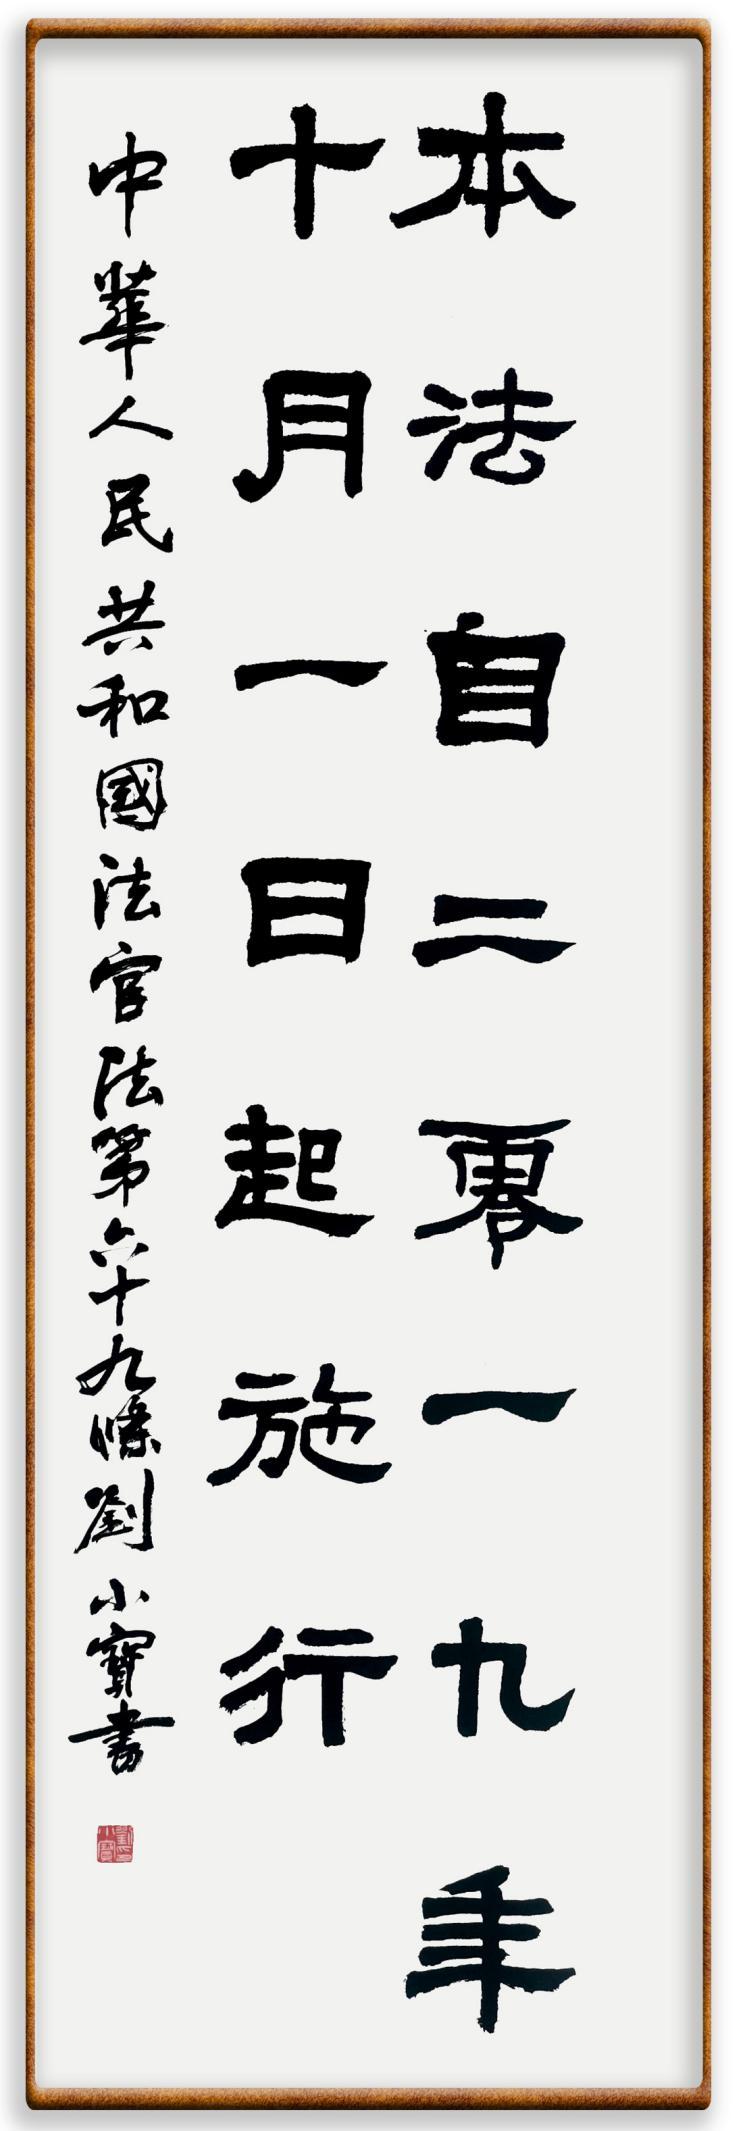 本法自二零一九年
十月一日起施行
中華人民共和國法官法第六十九條劉小寶書